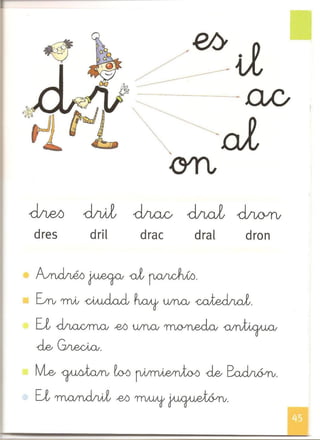 es
il
dr
ac
al
on
dres dril drac dral dron
dres dril drac dral dron
Andrés juega al parchís.
En mi ciudad hay una catedral.
El dracma es una moneda antigua
de Grecia.
Me gustan los pimientos de Padrón.
El mandril es muy juguetón.
45